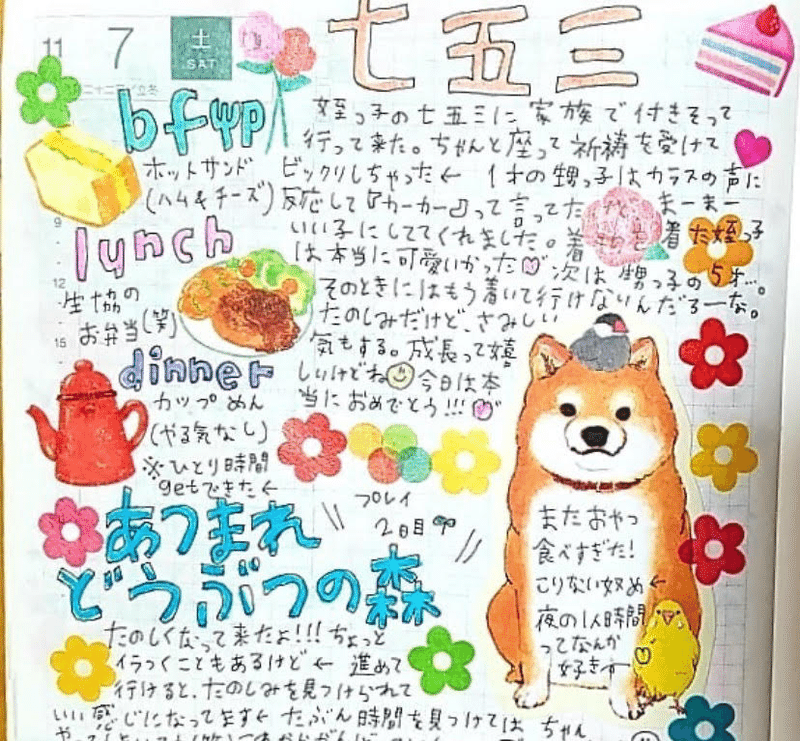 11
7
土
SAT
七五三
bf
姪っ子の七五三に家族で付きそって
行って来た。ちゃんと座って祈祷を受けて
ビックリしちゃった← 1才の甥っ子はカラスの声に
反応して『カーカー』って言ってたけど まーまー
いい子にしててくれました。着物を着た姪っ子
は本当に可愛いかった 次は甥っ子の5才…。
そのときにはもう着いて行けないんだろーな。
たのしみだけど、さみしい
気もする。成長って嬉
しいけどね 今日は本
当におめでとう!!!
ホットサンド
(ハム&チーズ)
lunch
9
12
15
生協の
お弁当(笑)
dinner
カップめん
(やる気なし)
※ひとり時間
getもできた←
あつまれ
どうぶつの森
プレイ
2日目
たのしくなって来たよ!!! ちょっと
イラつくこともあるけど← 進めて
行けると、たのしみを見つけられて
いい感じになってます← たぶん時間を見つけては ちゃん
またおやつ
食べすぎた!
こりない奴め←
夜の1人時間
ってなんか
好き